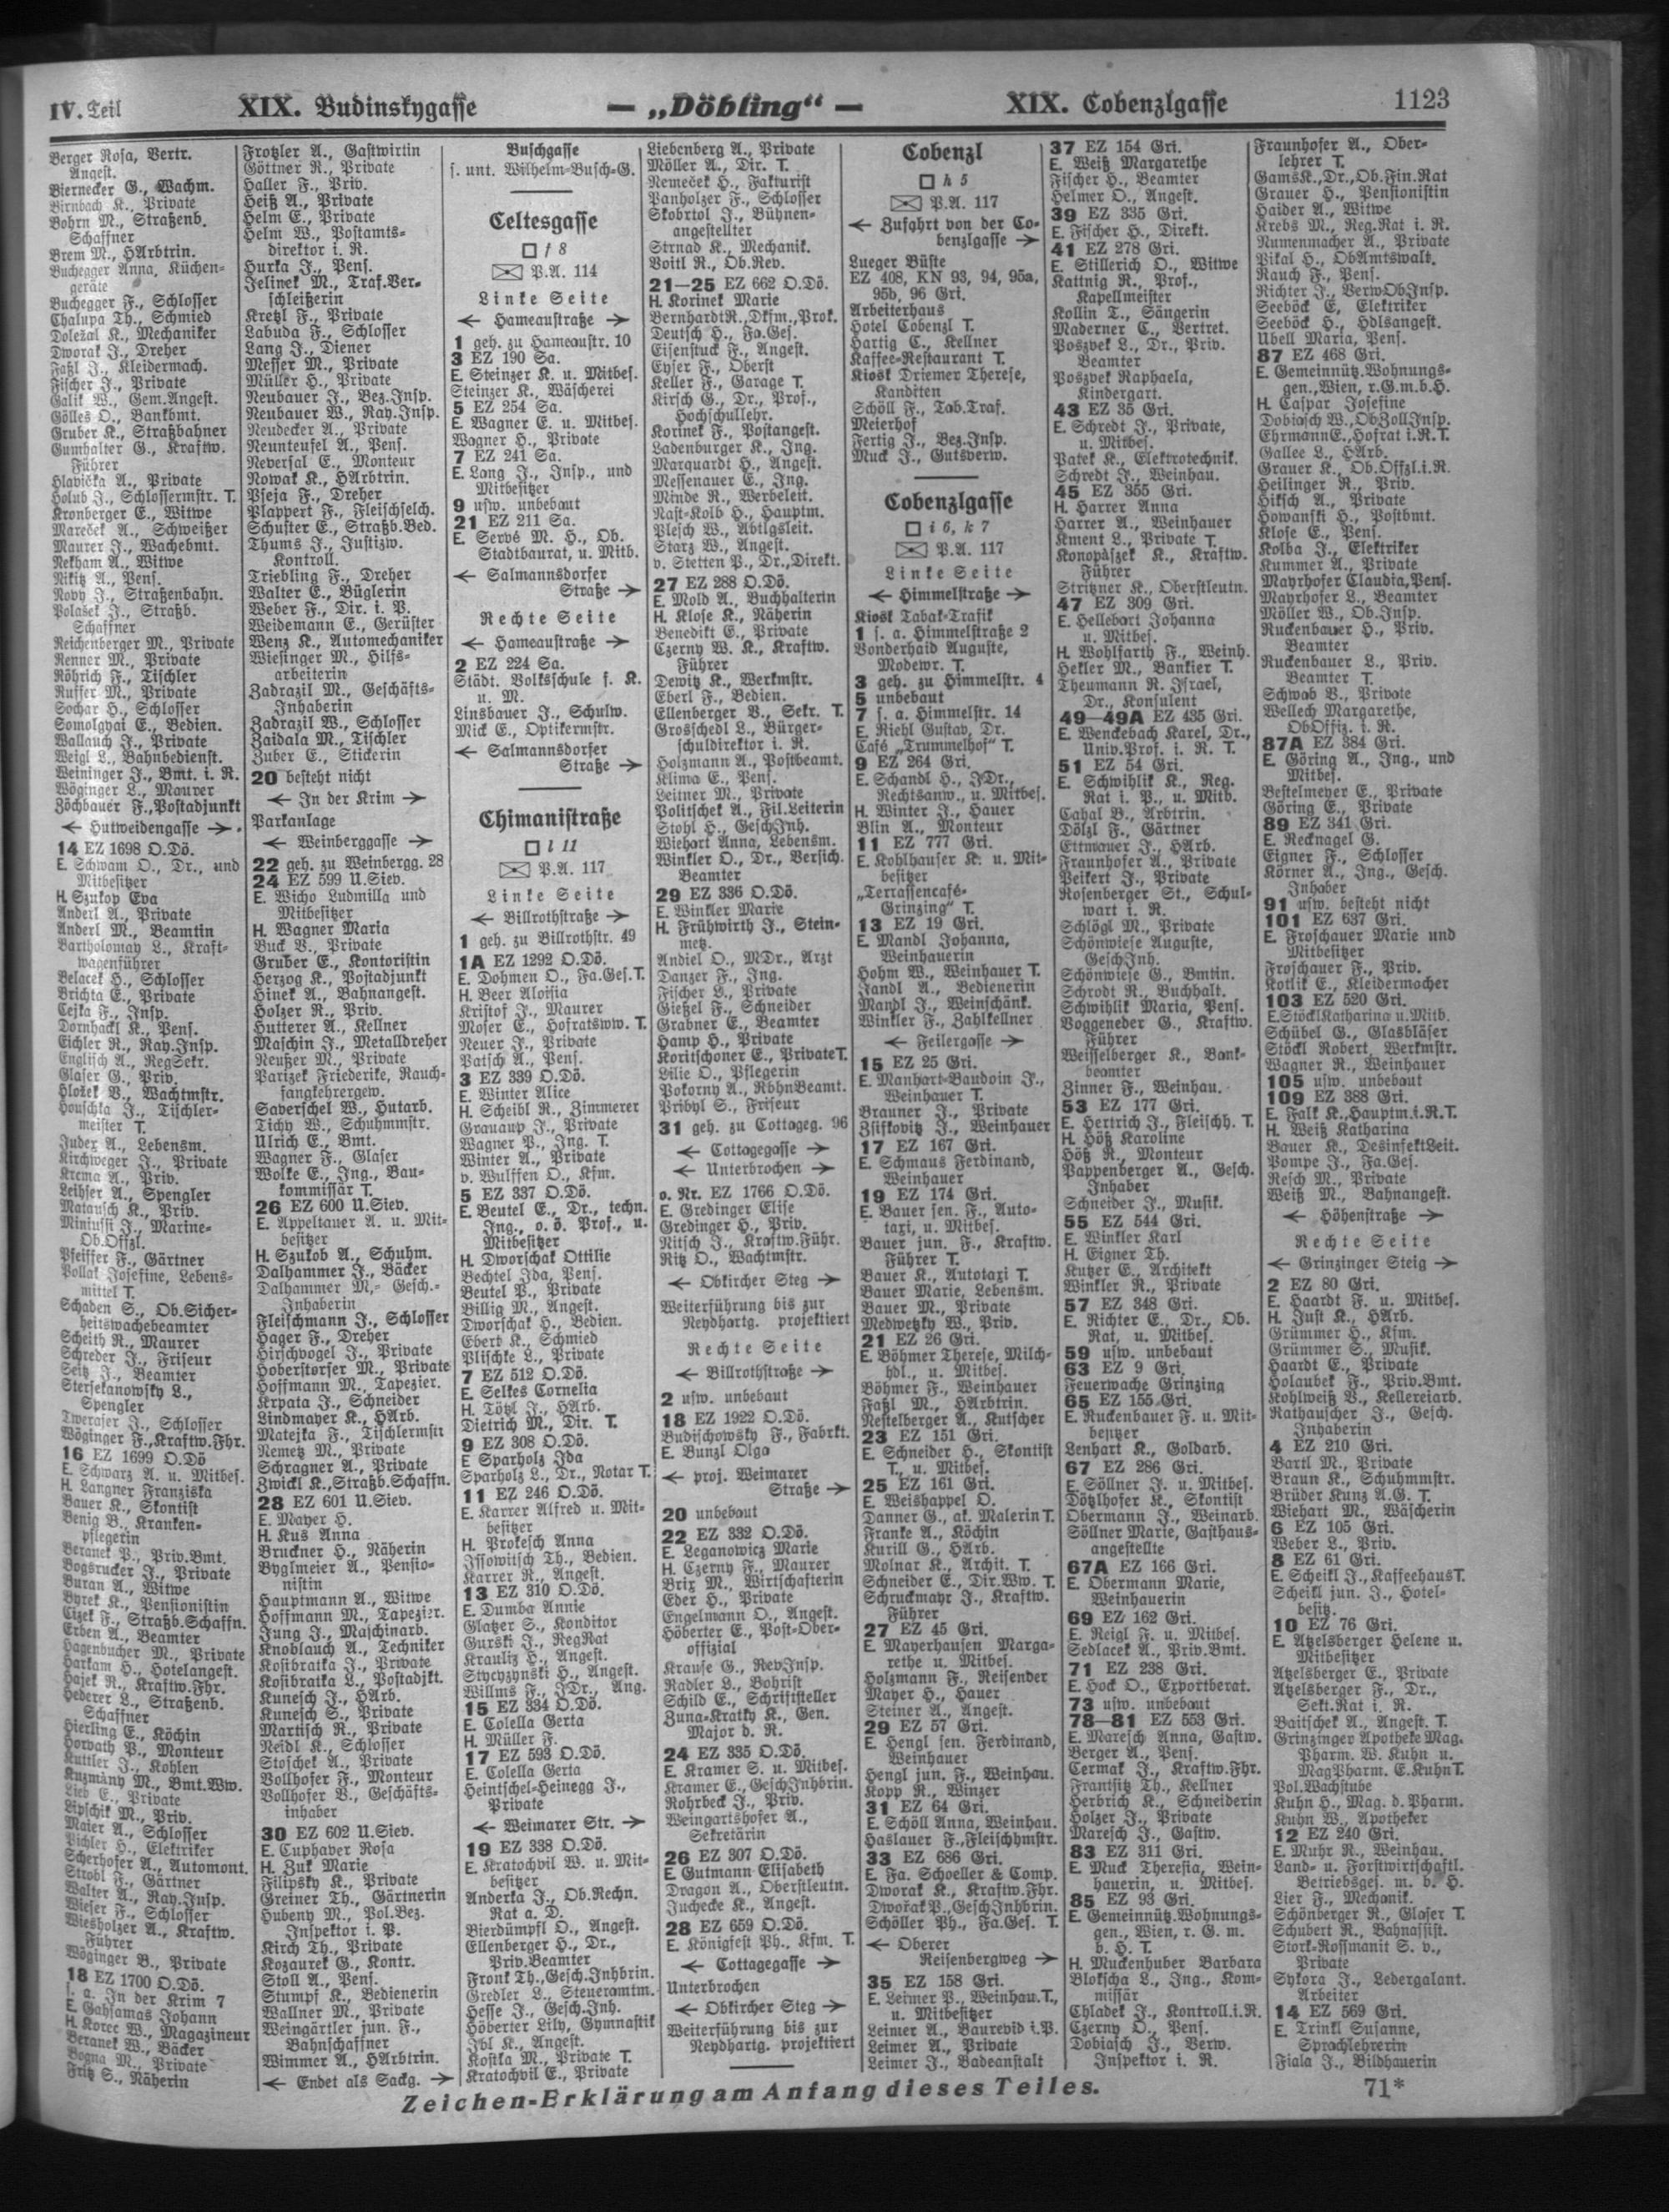 IV. Teil
XIX. Budinskygasse
— „Döbling“ —
XIX. Cobenzlgasse
1123
Berger Rosa, Vertr.
Angest.
Biernecker G., Wachm.
Birnbach K., Private
Bohrn M., Straßenb.
Schaffner
Brem M., HArbtrin.
Buchegger Anna, Küchen-
geräte
Buchegger F., Schlosser
Chalupa Th., Schmied
Doležal K., Mechaniker
Dworak J., Dreher
Faßl J., Kleidermach.
Fischer J., Private
Galik W., Gem.Angest.
Gölles O., Bankbmt.
Gruber K., Straßbahner
Gumhalter G., Kraftw.
Führer
Hlavička A., Private
Holub J., Schlossermstr. T.
Kronberger E., Witwe
Mareček A., Schweißer
Maurer J., Wachebmt.
Nekham A., Witwe
Nikitz A., Pens.
Novy J., Straßenbahn.
Polašek J., Straßb.
Schaffner
Reichenberger M., Private
Renner M., Private
Röhrich F., Tischler
Russer M., Private
Sochar H., Schlosser
Somolgyai E., Bedien.
Wallauch J., Private
Weigl L., Bahnbedienst.
Weininger J., Bmt. i. R.
Wöginger L., Maurer
Zöchbauer F., Postadjunkt
← Hutweidengasse →
14 EZ 1698 O.Dö.
E. Schwam O., Dr., und
Mitbesitzer
H. Szukop Eva
Anderl A., Private
Anderl M., Beamtin
Bartholomay L., Kraft-
wagenführer
Belacek H., Schlosser
Brichta E., Private
Cejka F., Insp.
Dornhackl K., Pens.
Eichler R., Ray.Insp.
Englisch A., RegSekr.
Glaser G., Priv.
Hložek V., Wachtmstr.
Houschka J., Tischler-
meister T.
Judex A., Lebensm.
Kirchweger J., Private
Krcma A., Priv.
Leihser A., Spengler
Matausch K., Priv.
Miniussi J., Marine-
Ob.Offzl.
Pfeiffer F., Gärtner
Pollak Josefine, Lebens-
mittel T.
Schaden S., Ob.Sicher-
heitswachebeamter
Scheith R., Maurer
Schreder J., Friseur
Seitz J., Beamter
Stersekanowsky L.,
Spengler
Tweraser J., Schlosser
Wöginger F., Kraftw.Fhr.
16 EZ 1699 O.Dö
E. Schwarz A. u. Mitbes.
H. Langner Franziska
Bauer K., Skontist
Benig B., Kranken-
pflegerin
Beranek P., Priv.Bmt.
Bogsrucker J., Private
Buran A., Witwe
Byrek K., Pensionistin
Cizek F., Straßb.Schaffn.
Erben A., Beamter
Hagenbucher M., Private
Harkam H., Hotelangest.
Hajek R., Kraftw.Fhr.
Hederer L., Straßenb.
Schaffner
Hierling E., Köchin
Horvath P., Monteur
Kuttler J., Kohlen
Kuzmàny M., Bmt.Ww.
Lieb E., Private
Lipschik M., Priv.
Maier A., Schlosser
Pichler H., Elektriker
Scherhofer A., Automont.
Strobl F., Gärtner
Walter A., Ray.Insp.
Wieser F., Schlosser
Wiesholzer A., Kraftw.
Führer
Wöginger B., Private
18 EZ 1700 O.Dö.
s. a. In der Krim 7
E. Gahsamas Johann
H. Korec W., Magazineur
Beranek W., Bäcker
Bogna M., Private
Fritz S., Näherin
Frotzler A., Gastwirtin
Göttner R., Private
Haller F., Priv.
Heiß A., Private
Helm E., Private
Helm W., Postamts-
direktor i. R.
Hurka J., Pens.
Jelinek M., Traf.Ver-
schleißerin
Kretzl F., Private
Labuda F., Schlosser
Lang J., Diener
Messer M., Private
Müller H., Private
Neubauer J., Bez.Insp.
Neubauer W., Ray.Insp.
Neudecker A., Private
Neunteufel A., Pens.
Neversal E., Monteur
Nowak K., HArbtrin.
Pseja F., Dreher
Plappert F., Fleischselch.
Schuster E., Straßb.Bed.
Thums J., Justizw.
Kontroll.
Triebling F., Dreher
Walter E., Büglerin
Weber F., Dir. i. P.
Weidemann E., Gerüster
Wenz K., Automechaniker
Wiesinger M., Hilfs-
arbeiterin
Zadrazil M., Geschäfts-
Inhaberin
Zadrazil W., Schlosser
Zaidala M., Tischler
Zuber E., Stickerin
20 besteht nicht
← In der Krim →
Parkanlage
← Weinberggasse →
22 geh. zu Weinbergg. 28
24 EZ 599 U.Siev.
E. Wicho Ludmilla und
Mitbesitzer
H. Wagner Maria
Buck V., Private
Gruber E., Kontoristin
Herzog K., Postadjunkt
Hinek A., Bahnangest.
Holzer R., Priv.
Hutterer A., Kellner
Maschin J., Metalldreher
Neußer M., Private
Parizek Friederike, Rauch-
fangkehrergew.
Saverschel W., Hutarb.
Tichy W., Schuhmmstr.
Ulrich E., Bmt.
Wagner F., Glaser
Wolke E., Ing., Bau-
kommissär T.
26 EZ 600 U.Siev.
E. Appeltauer A. u. Mit-
besitzer
H. Szukob A., Schuhm.
Dalhammer J., Bäcker
Dalhammer M., Gesch.-
Inhaberin
Fleischmann J., Schlosser
Hager F., Dreher
Hirschvogel J., Private
Hoberstorfer M., Private
Hoffmann M., Tapezier.
Krpata J., Schneider
Lindmayer K., HArb.
Matejka F., Tischlermstr
Nemetz M., Private
Schragner A., Private
Zwickl K., Straßb.Schaffn.
28 EZ 601 U.Siev.
E. Mayer H.
H. Kus Anna
Bruckner H., Näherin
Byglmeier A., Pensio-
nistin
Hauptmann A., Witwe
Hoffmann M., Tapezier.
Jung J., Maschinarb.
Knoblauch A., Techniker
Kosibratka J., Private
Kosibratka L., Postadjkt.
Kunesch J., HArb.
Kunesch S., Private
Martisch R., Private
Neidl K., Schlosser
Stoschek A., Private
Vollhofer F., Monteur
Vollhofer V., Geschäfts-
inhaber
30 EZ 602 U.Siev.
E. Cuphaver Rosa
H. Zuk Marie
Filipsky K., Private
Greiner Th., Gärtnerin
Hubeny M., Pol.Bez.
Inspektor i. P.
Kirch Th., Private
Kozaurek G., Kontr.
Stoll A., Pens.
Stumpf K., Bedienerin
Wallner M., Private
Weingärtler jun. F.,
Bahnschaffner
Wimmer A., HArbtrin.
← Endet als Sackg. →
Buschgasse
s. unt. Wilhelm-Busch-G.
Celtesgasse
□ f 8
P.A. 114
Linke Seite
← Hameaustraße →
1 geh. zu Hameaustr. 10
3 EZ 190 Sa.
E. Steinzer K. u. Mitbes.
Steinzer K., Wäscherei
5 EZ 254 Sa.
E. Wagner E. u. Mitbes.
Wagner H., Private
7 EZ 241 Sa.
E. Lang J., Insp., und
Mitbesitzer
9 usw. unbebaut
21 EZ 211 Sa.
E. Servé M. H., Ob.
Stadtbaurat, u. Mitb.
← Salmannsdorfer
Straße →
Rechte Seite
← Hameaustraße →
2 EZ 224 Sa.
Städt. Volksschule f. K.
u. M.
Linsbauer J., Schulw.
Mick E., Optikermstr.
← Salmannsdorfer
Straße →
Chimanistraße
□ l 11
P.A. 117
Linke Seite
← Billrothstraße →
1 geh. zu Billrothstr. 49
1A EZ 1292 O.Dö.
E. Dohmen O., Fa.Ges. T.
H. Beer Aloisia
Kristof J., Maurer
Moser E., Hofratsww. T.
Neuer J., Private
Patsch A., Pens.
3 EZ 339 O.Dö.
E. Winter Alice
H. Scheibl R., Zimmerer
Grauaup J., Private
Wagner P., Ing. T.
Winter A., Private
v. Wulffen O., Kfm.
5 EZ 337 O.Dö.
E. Beutel E., Dr., techn.
Ing., o. ö. Prof., u.
Mitbesitzer
H. Dworschak Ottilie
Bechtel Ida, Pens.
Beutel P., Private
Billig M., Angest.
Dworschak H., Bedien.
Ebert K., Schmied
Plischke L., Private
7 EZ 512 O.Dö.
E. Selkes Cornelia
H. Tötzl J., HArb.
Dietrich M., Dir. T.
9 EZ 308 O.Dö.
E Sparholz Ida
Sparholz L., Dr., Notar T.
11 EZ 246 O.Dö.
E. Karrer Alfred u. Mit-
besitzer
H. Prokesch Anna
Issowitsch Th., Bedien.
Karrer R., Angest.
13 EZ 310 O.Dö.
E. Dumba Annie
Glatzer S., Konditor
Gurski J., RegRat
Krauliz H., Angest.
Stycyzynski H., Angest.
Willms F., JDr., Ang.
15 EZ 334 O.Dö.
E. Colella Gerta
H. Müller F.
17 EZ 593 O.Dö.
E. Colella Gerta
Heintschel-Heinegg J.,
Private
← Weimarer Str. →
19 EZ 338 O.Dö.
E. Kratochvil W. u. Mit-
besitzer
Anderka J., Ob.Rechn.
Rat a. D.
Bierdümpfl O., Angest.
Ellenberger H., Dr.,
Priv.Beamter
Fronk Th., Gesch.Inhbrin.
Gredler L., Steueramtm.
Hesse J., Gesch.Inh.
Höberter Lily, Gymnastik
Jbl K., Angest.
Kostka M., Private T.
Kratochvil E., Private
Liebenberg A., Private
Möller A., Dir. T.
Nemeček H., Fakturist
Panholzer F., Schlosser
Skobrtol J., Bühnen-
angestellter
Strnad K., Mechanik.
Voitl R., Ob.Rev.
21—25 EZ 662 O.Dö.
H. Korinek Marie
Bernhardt R., Dkfm., Prok.
Deutsch H., Fa.Ges.
Eisenstuck F., Angest.
Eyser F., Oberst
Keller F., Garage T.
Kirsch G., Dr., Prof.,
Hochschullehr.
Korinek F., Postangest.
Ladenburger K., Ing.
Marquardt H., Angest.
Messenauer E., Ing.
Minde R., Werbeleit.
Nast-Kolb H., Hauptm.
Plesch W., Abtlgsleit.
Starz W., Angest.
v. Stetten P., Dr., Direkt.
27 EZ 288 O.Dö.
E. Mold A., Buchhalterin
H. Klose K., Näherin
Benedikt E., Private
Czerny W. K., Kraftw.
Führer
Dewitz K., Werkmstr.
Eberl F., Bedien.
Ellenberger B., Sekr. T.
Grosschedl L., Bürger-
schuldirektor i. R.
Holzmann A., Postbeamt.
Klima E., Pens.
Leitner M., Private
Politschek A., Fil.Leiterin
Stohl H., GeschInh.
Wiehart Anna, Lebensm.
Winkler O., Dr., Versich.
Beamter
29 EZ 336 O.Dö.
E. Winkler Marie
H. Frühwirth J., Stein-
metz.
Andiel O., MDr., Arzt
Danzer F., Ing.
Fischer L., Private
Gietzel F., Schneider
Grabner E., Beamter
Hamp H., Private
Koritschoner E., Private T.
Lilie O., Pflegerin
Pokorny A., RbhnBeamt.
Pribyl S., Friseur
31 geh. zu Cottageg. 96
← Cottagegasse →
← Unterbrochen →
o. Nr. EZ 1766 O.Dö.
E. Gredinger Elise
Gredinger H., Priv.
Nitsch J., Kraftw.Führ.
Ritz O., Wachtmstr.
← Obkircher Steg →
Weiterführung bis zur
Neydhartg. projektiert
Rechte Seite
← Billrothstraße →
2 usw. unbebaut
18 EZ 1922 O.Dö.
Budischowsky F., Fabrkt.
E. Bunzl Olga
← proj. Weimarer
Straße →
20 unbebaut
22 EZ 332 O.Dö.
E. Leganowicz Marie
H. Czerny F., Maurer
Brix M., Wirtschafterin
Eder H., Private
Engelmann O., Angest.
Höberter E., Post-Ober-
offizial
Krause G., RevInsp.
Radler L., Bohrist
Schild E., Schriftsteller
Zuna-Kratky K., Gen.
Major d. R.
24 EZ 335 O.Dö.
E. Kramer S. u. Mitbes.
Kramer E., GeschInhbrin.
Rohrbeck J., Priv.
Weingartshofer A.,
Sekretärin
26 EZ 307 O.Dö.
E Gutmann Elisabeth
Dragon A., Oberstleutn.
Juchecke K., Angest.
28 EZ 659 O.Dö.
E. Königfest Ph., Kfm. T.
← Cottagegasse →
Unterbrochen
← Obkircher Steg →
Weiterführung bis zur
Neydhartg. projektiert
Cobenzl
□ h 5
P.A. 117
← Zufahrt von der Co-
benzlgasse →
Lueger Büste
EZ 408, KN 93, 94, 95a,
95b, 96 Gri.
Arbeiterhaus
Hotel Cobenzl T.
Hartig C., Kellner
Kaffee-Restaurant T.
Kiosk Driemer Therese,
Kanditen
Schöll F., Tab.Traf.
Meierhof
Fertig J., Bez.Insp.
Muck J., Gutsverw.
Cobenzlgasse
□ i 6, k 7
P.A. 117
Linke Seite
← Himmelstraße →
Kiosk Tabak-Trafik
1 s. a. Himmelstraße 2
Vonderhaid Auguste,
Modewr. T.
3 geh. zu Himmelstr. 4
5 unbebaut
7 s. a. Himmelstr. 14
E. Riehl Gustav, Dr.
Café „Trummelhof“ T.
9 EZ 264 Gri.
E. Schandl H., JDr.,
Rechtsanw., u. Mitbes.
H. Winter J., Hauer
Blin A., Monteur
11 EZ 777 Gri.
E. Kohlhauser K. u. Mit-
besitzer
„Terrassencafé-
Grinzing“ T.
13 EZ 19 Gri.
E. Mandl Johanna,
Weinhauerin
Hohm W., Weinhauer T.
Jandl A., Bedienerin
Mandl J., Weinschänk.
Winkler F., Zahlkellner
← Feilergasse →
15 EZ 25 Gri.
E. Manhart-Baudoin J.,
Weinhauer T.
Brauner J., Private
Zsifkovitz J., Weinhauer
17 EZ 167 Gri.
E. Schmaus Ferdinand,
Weinhauer
19 EZ 174 Gri.
E. Bauer sen. F., Auto-
taxi, u. Mitbes.
Bauer jun. F., Kraftw.
Führer T.
Bauer K., Autotaxi T.
Bauer Marie, Lebensm.
Bauer M., Private
Medwetzky W., Priv.
21 EZ 26 Gri.
E. Böhmer Therese, Milch-
hdl., u. Mitbes.
Böhmer F., Weinhauer
Faßl M., HArbtrin.
Nestelberger A., Kutscher
23 EZ 151 Gri.
E. Schneider H., Skontist
T., u. Mitbes.
25 EZ 161 Gri.
E. Weishappel O.
Danner G., ak. Malerin T.
Franke A., Köchin
Kurill G., HArb.
Molnar K., Archit. T.
Schneider E., Dir.Ww. T.
Schruckmayr J., Kraftw.
Führer
27 EZ 45 Gri.
E. Mayerhausen Marga-
rethe u. Mitbes.
Holzmann F., Reisender
Mayer H., Hauer
Steiner A., Angest.
29 EZ 57 Gri.
E. Hengl sen. Ferdinand,
Weinhauer
Hengl jun. F., Weinhau.
Kopp R., Winzer
31 EZ 64 Gri.
E. Schöll Anna, Weinhau.
Haslauer F., Fleischhmstr.
33 EZ 686 Gri.
E. Fa. Schoeller & Comp.
Dworak K., Kraftw.Fhr.
Dwořak P., GeschInhbrin.
Schöller Ph., Fa.Ges. T.
← Oberer
Reisenbergweg →
35 EZ 158 Gri.
E. Leimer P., Weinhau. T.,
u. Mitbesitzer
Leimer A., Baurevid i.P.
Leimer A., Private
Leimer J., Badeanstalt
37 EZ 154 Gri.
E. Weiß Margarethe
Fischer H., Beamter
Helmer O., Angest.
39 EZ 335 Gri.
E. Fischer H., Direkt.
41 EZ 278 Gri.
E. Stillerich O., Witwe
Kattnig R., Prof.,
Kapellmeister
Kollin T., Sängerin
Maderner C., Vertret.
Poszvek L., Dr., Priv.
Beamter
Poszvek Raphaela,
Kindergart.
43 EZ 35 Gri.
E. Schredt J., Private,
u. Mitbes.
Patek K., Elektrotechnik.
Schredt J., Weinhau.
45 EZ 355 Gri.
H. Harrer Anna
Harrer A., Weinhauer
Kment L., Private T.
Konopàszek K., Kraftw.
Führer
Stritzner K., Oberstleutn.
47 EZ 309 Gri.
E. Hellebart Johanna
u. Mitbes.
H. Wohlfarth F., Weinh.
Hekler M., Bankier T.
Theumann R. Israel,
Dr., Konsulent
49—49A EZ 435 Gri.
E. Wenckebach Karel, Dr.,
Univ.Prof. i. R. T.
51 EZ 54 Gri.
E. Schwihlik K., Reg.
Rat i. P., u. Mitb.
Cahal B., Arbtrin.
Dölzl F., Gärtner
Ettmauer J., HArb.
Fraunhofer A., Private
Peikert J., Private
Rosenberger St., Schul-
wart i. R.
Schlögl M., Private
Schönwiese Auguste,
GeschInh.
Schönwiese G., Bmtin.
Schrodt R., Buchhalt.
Schwihlik Maria, Pens.
Voggeneder G., Kraftw.
Führer
Weisselberger K., Bank-
beamter
Zinner F., Weinhau.
53 EZ 177 Gri.
E. Hertrich J., Fleischh. T.
H. Höß Karoline
Höß R., Monteur
Pappenberger A., Gesch.
Inhaber
Schneider J., Musik.
55 EZ 544 Gri.
E. Winkler Karl
H. Eigner Th.
Kutzer E., Architekt
Winkler R., Private
57 EZ 348 Gri.
E. Richter E., Dr., Ob.
Rat, u. Mitbes.
59 usw. unbebaut
63 EZ 9 Gri.
Feuerwache Grinzing
65 EZ 155 Gri.
E. Ruckenbauer F. u. Mit-
besitzer
Lenhart K., Goldarb.
67 EZ 286 Gri.
E. Söllner J. u. Mitbes.
Dötzlhofer K., Skontist
Obermann J., Weinarb.
Söllner Marie, Gasthaus-
angestellte
67A EZ 166 Gri.
E. Obermann Marie,
Weinhauerin
69 EZ 162 Gri.
E. Reigl F. u. Mitbes.
Sedlacek A., Priv.Bmt.
71 EZ 238 Gri.
E. Hock O., Exportberat.
73 usw. unbebaut
78—81 EZ 553 Gri.
E. Maresch Anna, Gastw.
Berger A., Pens.
Cermak J., Kraftw.Fhr.
Frantsitz Th., Kellner
Herbrich K., Schneiderin
Holzer J., Private
Maresch J., Gastw.
83 EZ 311 Gri.
E. Muck Theresia, Wein-
hauerin, u. Mitbes.
85 EZ 93 Gri.
E. Gemeinnütz.Wohnungs-
gen., Wien, r. G. m.
b. H. T.
H. Muckenhuber Barbara
Blokscha L., Ing., Kom-
missär
Chladek J., Kontroll.i.R.
Czerny O., Pens.
Dobiasch J., Verw.
Inspektor i. R.
Fraunhofer A., Ober-
lehrer T.
Gams K., Dr., Ob.Fin.Rat
Grauer H., Pensionistin
Haider A., Witwe
Krebs M., Reg.Rat i. R.
Numenmacher A., Private
Pikal H., ObAmtswalt.
Rauch F., Pens.
Richter J., VerwObInsp.
Seeböck E, Elektriker
Seeböck H., Hdlsangest.
Übell Maria, Pens.
87 EZ 468 Gri.
E. Gemeinnütz.Wohnungs-
gen., Wien, r.G.m.b.H.
H. Caspar Josefine
Dobiasch W., ObZollInsp.
Ehrmann E., Hofrat i.R.T.
Gallee L., HArb.
Grauer K., Ob.Offzl.i.R.
Heilinger R., Priv.
Hiksch A., Private
Howanski H., Postbmt.
Klose E., Pens.
Kolba J., Elektriker
Kummer A., Private
Mayrhofer Claudia, Pens.
Mayrhofer L., Beamter
Möller W., Ob.Insp.
Ruckenbauer H., Priv.
Beamter
Ruckenbauer L., Priv.
Beamter T.
Schwab V., Private
Wellech Margarethe,
ObOffiz. i. R.
87A EZ 384 Gri.
E. Göring A., Ing., und
Mitbes.
Bestelmeyer E., Private
Göring E., Private
89 EZ 341 Gri.
E. Recknagel G.
Eigner F., Schlosser
Körner A., Ing., Gesch.
Inhaber
91 usw. besteht nicht
101 EZ 637 Gri.
E. Froschauer Marie und
Mitbesitzer
Froschauer F., Priv.
Kotlik E., Kleidermacher
103 EZ 520 Gri.
E. Stöckl Katharina u.Mitb.
Schübel G., Glasbläser
Stöckl Robert, Werkmstr.
Wagner R., Weinhauer
105 usw. unbebaut
109 EZ 388 Gri.
E. Falk K., Hauptm.i.R.T.
H. Weiß Katharina
Bauer K., DesinfektLeit.
Pompe J., Fa.Ges.
Resch M., Private
Weiß M., Bahnangest.
← Höhenstraße →
Rechte Seite
← Grinzinger Steig →
2 EZ 80 Gri.
E. Haardt F. u. Mitbes.
H. Just K., HArb.
Grümmer H., Kfm.
Grümmer S., Musik.
Haardt E., Private
Holaubek F., Priv.Bmt.
Kohlweiß V., Kellereiarb.
Rathauscher J., Gesch.
Inhaberin
4 EZ 210 Gri.
Bartl M., Private
Braun K., Schuhmmstr.
Brüder Kunz A.G. T.
Wiehart M., Wäscherin
6 EZ 105 Gri.
Weber L., Priv.
8 EZ 61 Gri.
E. Scheikl J., Kaffeehaus T.
Scheikl jun. J., Hotel-
besitz.
10 EZ 76 Gri.
E. Atzelsberger Helene u.
Mitbesitzer
Atzelsberger E., Private
Atzelsberger F., Dr.,
Sekt.Rat i. R.
Baitschek A., Angest. T.
Grinzinger Apotheke Mag.
Pharm. W. Kuhn u.
MagPharm. E.Kuhn T.
Pol.Wachstube
Kuhn H., Mag. d. Pharm.
Kuhn W., Apotheker
12 EZ 240 Gri.
E. Muhr R., Weinhau.
Land- u. Forstwirtschaftl.
Betriebsges. m. b. H.
Lier F., Mechanik.
Schönberger R., Glaser T.
Schubert R., Bahnassist.
Stork-Rossmanit S. v.,
Private
Sykora J., Ledergalant.
Arbeiter
14 EZ 569 Gri.
E. Trinkl Susanne,
Sprachlehrerin
Fiala J., Bildhauerin
Zeichen-Erklärung am Anfang dieses Teiles.
71*